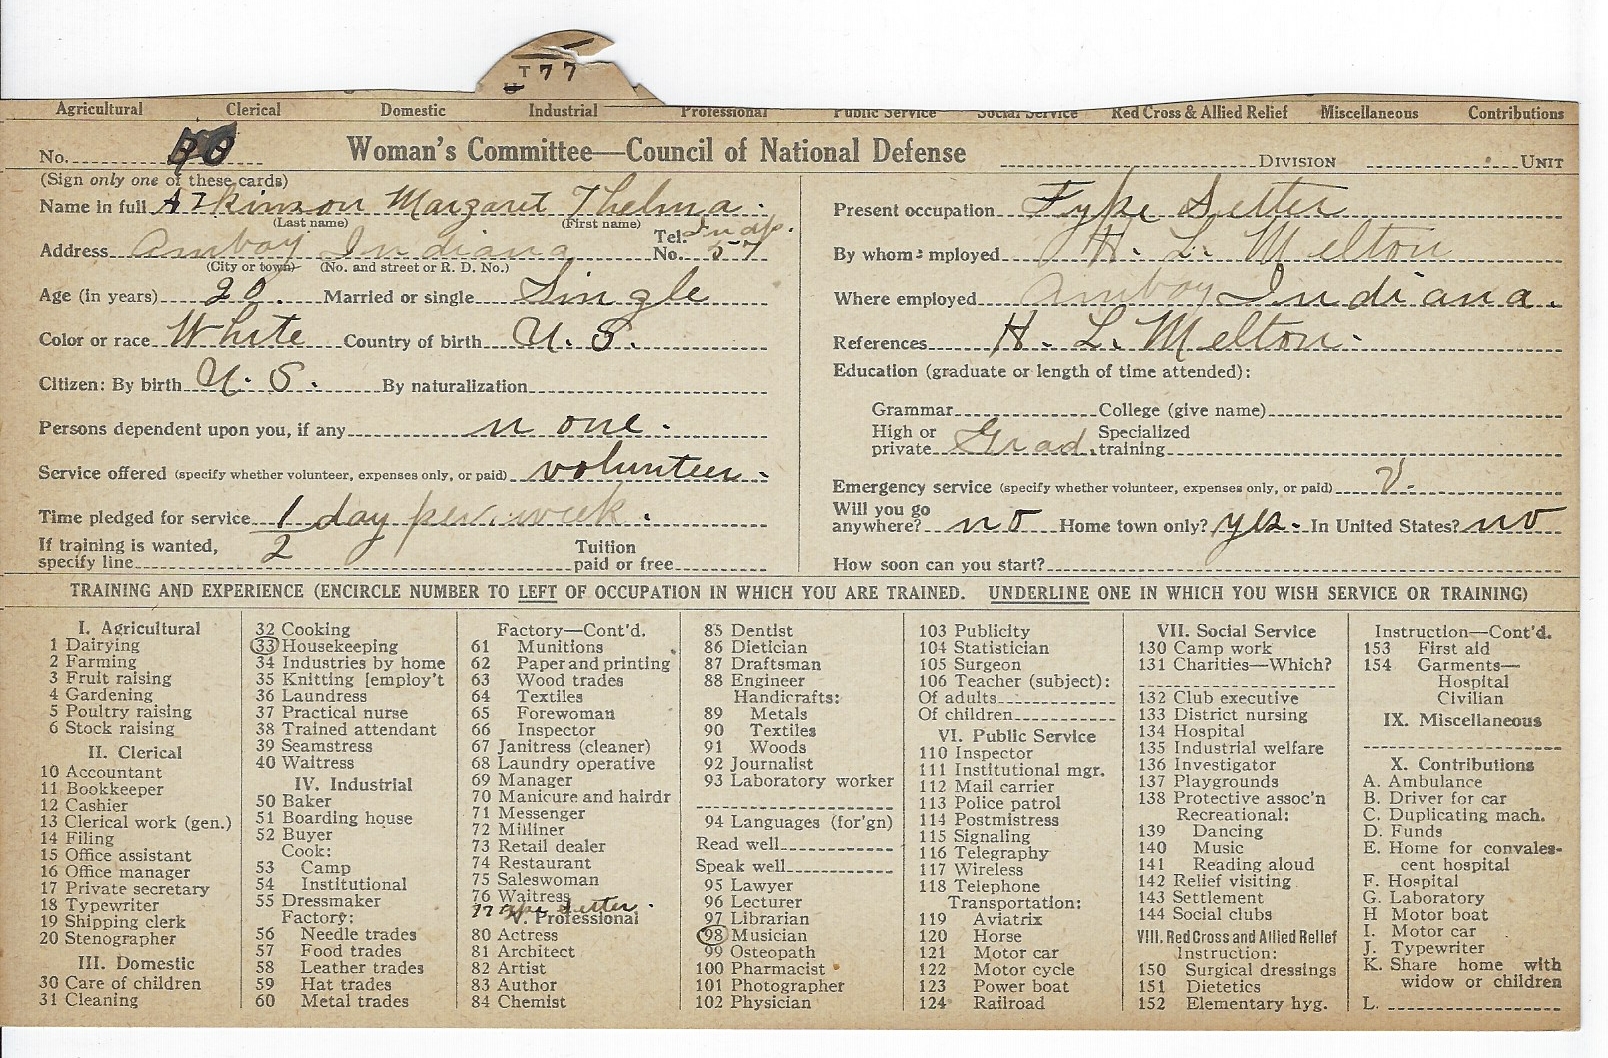 T 7 7
Agricultural Clerical Domestic Industrial Professional Public Service Social Service Red Cross & Allied Relief Miscellaneous Contributions
No. Woman's Committee—Council of National Defense DIVISION UNIT
(Sign only one of these cards)
Name in full Atkinson Margaret Thelma.
(Last name) (First name)
Address Amboy Indiana Tel. No. Indp. 57
(City or town) (No. and street or R. D. No.)
Age (in years) 20. Married or single Single
Color or race White Country of birth U. S.
Citizen: By birth U. S. By naturalization
Persons dependent upon you, if any none.
Service offered (specify whether volunteer, expenses only, or paid) volunteer.
Time pledged for service 1 day per. week.
If training is wanted, specify line 2 Tuition paid or free
Present occupation Type Setter
By whom employed H. L. Melton
Where employed Amboy Indiana.
References H. L. Melton.
Education (graduate or length of time attended):
Grammar College (give name)
High or private Grad. Specialized training
Emergency service (specify whether volunteer, expenses only, or paid) V.
Will you go anywhere? no Home town only? yes. In United States? no
How soon can you start?
TRAINING AND EXPERIENCE (ENCIRCLE NUMBER TO LEFT OF OCCUPATION IN WHICH YOU ARE TRAINED. UNDERLINE ONE IN WHICH YOU WISH SERVICE OR TRAINING)
I. Agricultural
1 Dairying
2 Farming
3 Fruit raising
4 Gardening
5 Poultry raising
6 Stock raising
II. Clerical
10 Accountant
11 Bookkeeper
12 Cashier
13 Clerical work (gen.)
14 Filing
15 Office assistant
16 Office manager
17 Private secretary
18 Typewriter
19 Shipping clerk
20 Stenographer
III. Domestic
30 Care of children
31 Cleaning
32 Cooking
33 Housekeeping
34 Industries by home
35 Knitting [employ't
36 Laundress
37 Practical nurse
38 Trained attendant
39 Seamstress
40 Waitress
IV. Industrial
50 Baker
51 Boarding house
52 Buyer
Cook:
53 Camp
54 Institutional
55 Dressmaker
Factory:
56 Needle trades
57 Food trades
58 Leather trades
59 Hat trades
60 Metal trades
Factory—Cont'd.
61 Munitions
62 Paper and printing
63 Wood trades
64 Textiles
65 Forewoman
66 Inspector
67 Janitress (cleaner)
68 Laundry operative
69 Manager
70 Manicure and hairdr
71 Messenger
72 Milliner
73 Retail dealer
74 Restaurant
75 Saleswoman
76 Waitress
77 Type Setter.
V. Professional
80 Actress
81 Architect
82 Artist
83 Author
84 Chemist
85 Dentist
86 Dietician
87 Draftsman
88 Engineer
Handicrafts:
89 Metals
90 Textiles
91 Woods
92 Journalist
93 Laboratory worker
94 Languages (for'gn)
Read well
Speak well
95 Lawyer
96 Lecturer
97 Librarian
98 Musician
99 Osteopath
100 Pharmacist
101 Photographer
102 Physician
103 Publicity
104 Statistician
105 Surgeon
106 Teacher (subject):
Of adults
Of children
VI. Public Service
110 Inspector
111 Institutional mgr.
112 Mail carrier
113 Police patrol
114 Postmistress
115 Signaling
116 Telegraphy
117 Wireless
118 Telephone
Transportation:
119 Aviatrix
120 Horse
121 Motor car
122 Motor cycle
123 Power boat
124 Railroad
VII. Social Service
130 Camp work
131 Charities—Which?
132 Club executive
133 District nursing
134 Hospital
135 Industrial welfare
136 Investigator
137 Playgrounds
138 Protective assoc'n
Recreational:
139 Dancing
140 Music
141 Reading aloud
142 Relief visiting
143 Settlement
144 Social clubs
VIII. Red Cross and Allied Relief
Instruction:
150 Surgical dressings
151 Dietetics
152 Elementary hyg.
Instruction—Cont'd.
153 First aid
154 Garments—
Hospital
Civilian
IX. Miscellaneous
X. Contributions
A. Ambulance
B. Driver for car
C. Duplicating mach.
D. Funds
E. Home for convales-
cent hospital
F. Hospital
G. Laboratory
H Motor boat
I. Motor car
J. Typewriter
K. Share home with
widow or children
L.